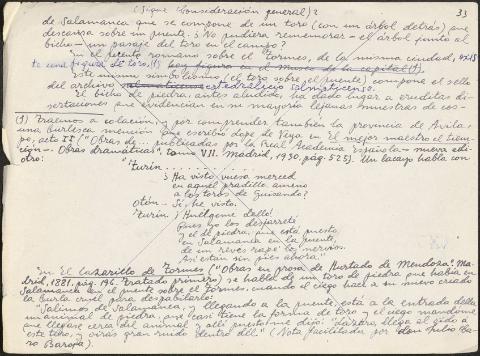 (Sigue Consideración general) 2
33
de Salamanca que se compone de un toro (con un árbol detrás) que
descansa sobre un puente. ¿No pudiera rememorar el árbol junto al
bicho un pasaje del toro en el campo?
En el puente romano sobre el Tormes, de la misma ciudad,
figura de toro. (1) hay figura en el Museo de la capital (1)
Este mismo simbolismo (el toro sobre el puente) compone el sello
del archivo catedralicio salmaticense.
El bicho de piedra, antes aludido, ha dado lugar a eruditas di-
sertaciones que evidencian en su mayoría lejanas muestras de cos-
(1) Traemos a colación, y por comprender también la provincia de Avila,
una burlesca mención que escribió Lope de Vega en El mejor maestro el tiem-
po, acto II ("Obras de - publicadas por la Real Academia Española - nueva edi-
ción - Obras dramáticas", tomo VII. Madrid, 1930, pág. 525). Un lacayo habla con
otro:
"Turín . . . . . . . . . .
¿Ha visto vuesa merced
en aquel pradillo ameno
a los toros de Guisando?
Otón.- Sí, he visto.
Turín. ¡Huélgome dello!
Pues yo los desjarreté
y el de piedra, que está puesto
en Salamanca en la puente,
de un revés rapé los
Así están sin pies ahora."
En El Lazarillo de Tormes ("Obras en prosa de Hurtado de Mendoza". Ma-
drid, 1881, pág. 196. Tratado primero) se habla de un toro de piedra que había en
Salamanca en el puente sobre el Tormes, cuando el ciego hace a su nuevo criado
la burla cruel para despabilarlo:
"Salimos de Salamanca, y llegando a la puente, está a la entrada della
un animal de piedra, que casi tiene la forma de toro, y el ciego mandóme
que llegase cerca del animal, y allí puesto me dijo: "Lázaro, llega el oído a
este toro, y oirás gran ruido dentro dél." (Nota facilitada por don Julio Ca-
ro Baroja).